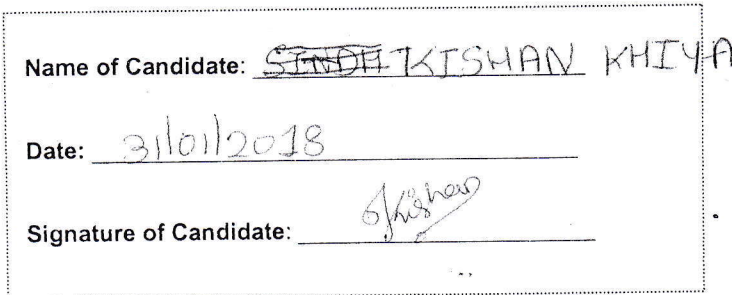 Name of Candidate: KISHAN KHIYA
Date: 31/01/2018
Signature of Candidate: Kishan